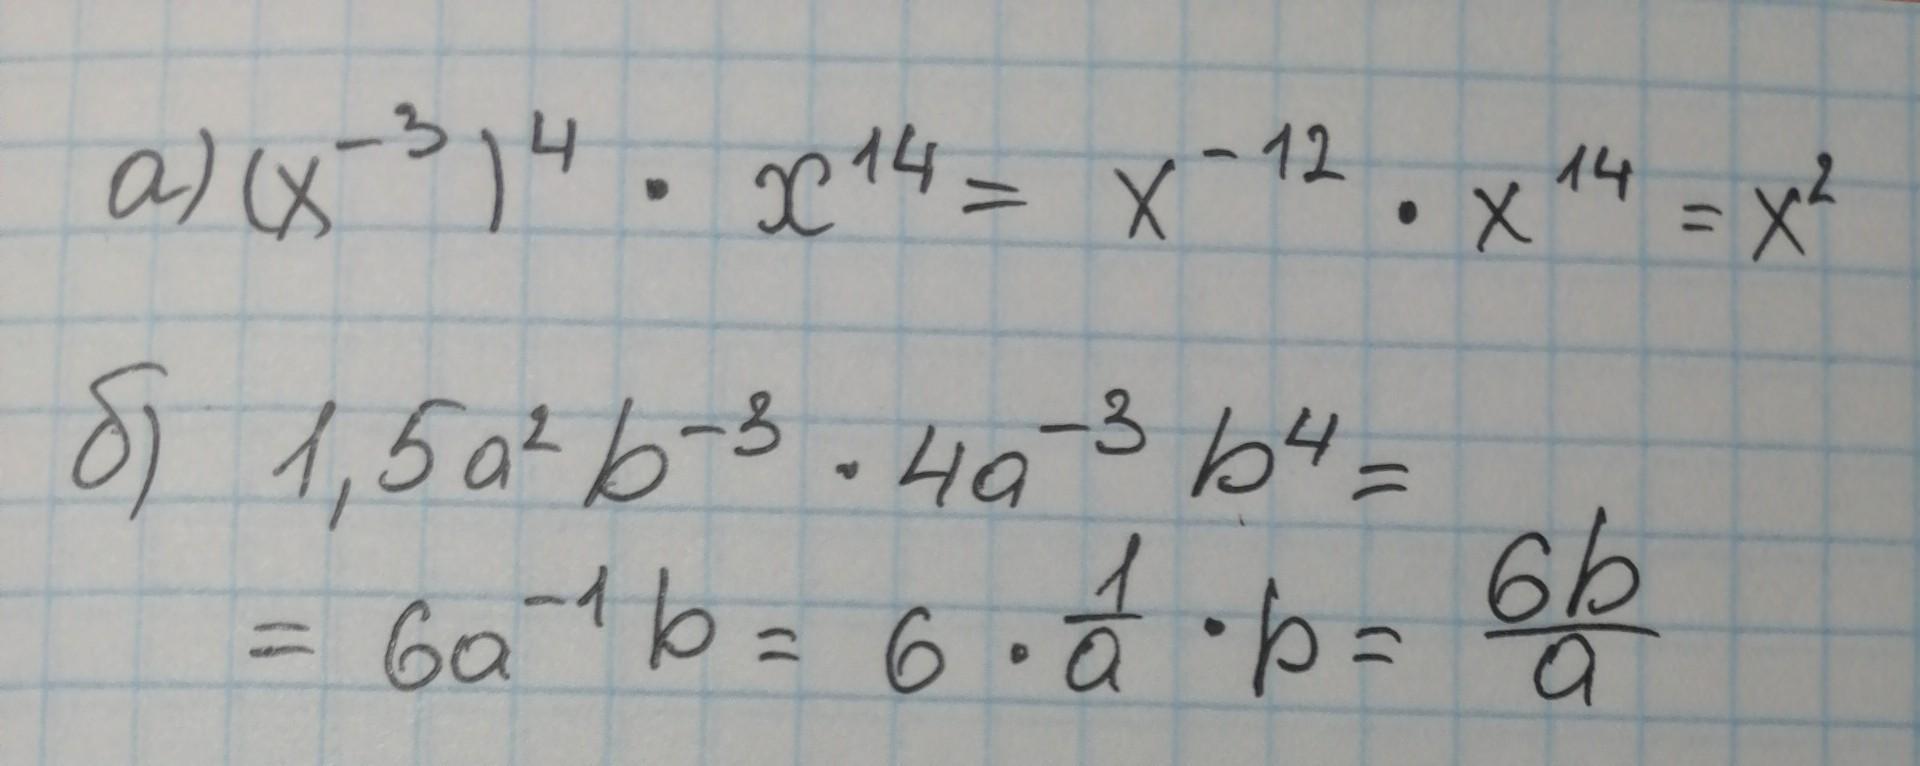 а) (x⁻³)⁴ · x¹⁴ = x⁻¹² · x¹⁴ = x²
б) 1,5a²b⁻³ · 4a⁻³b⁴ =
= 6a⁻¹b = 6 · 1/a · b = 6b/a